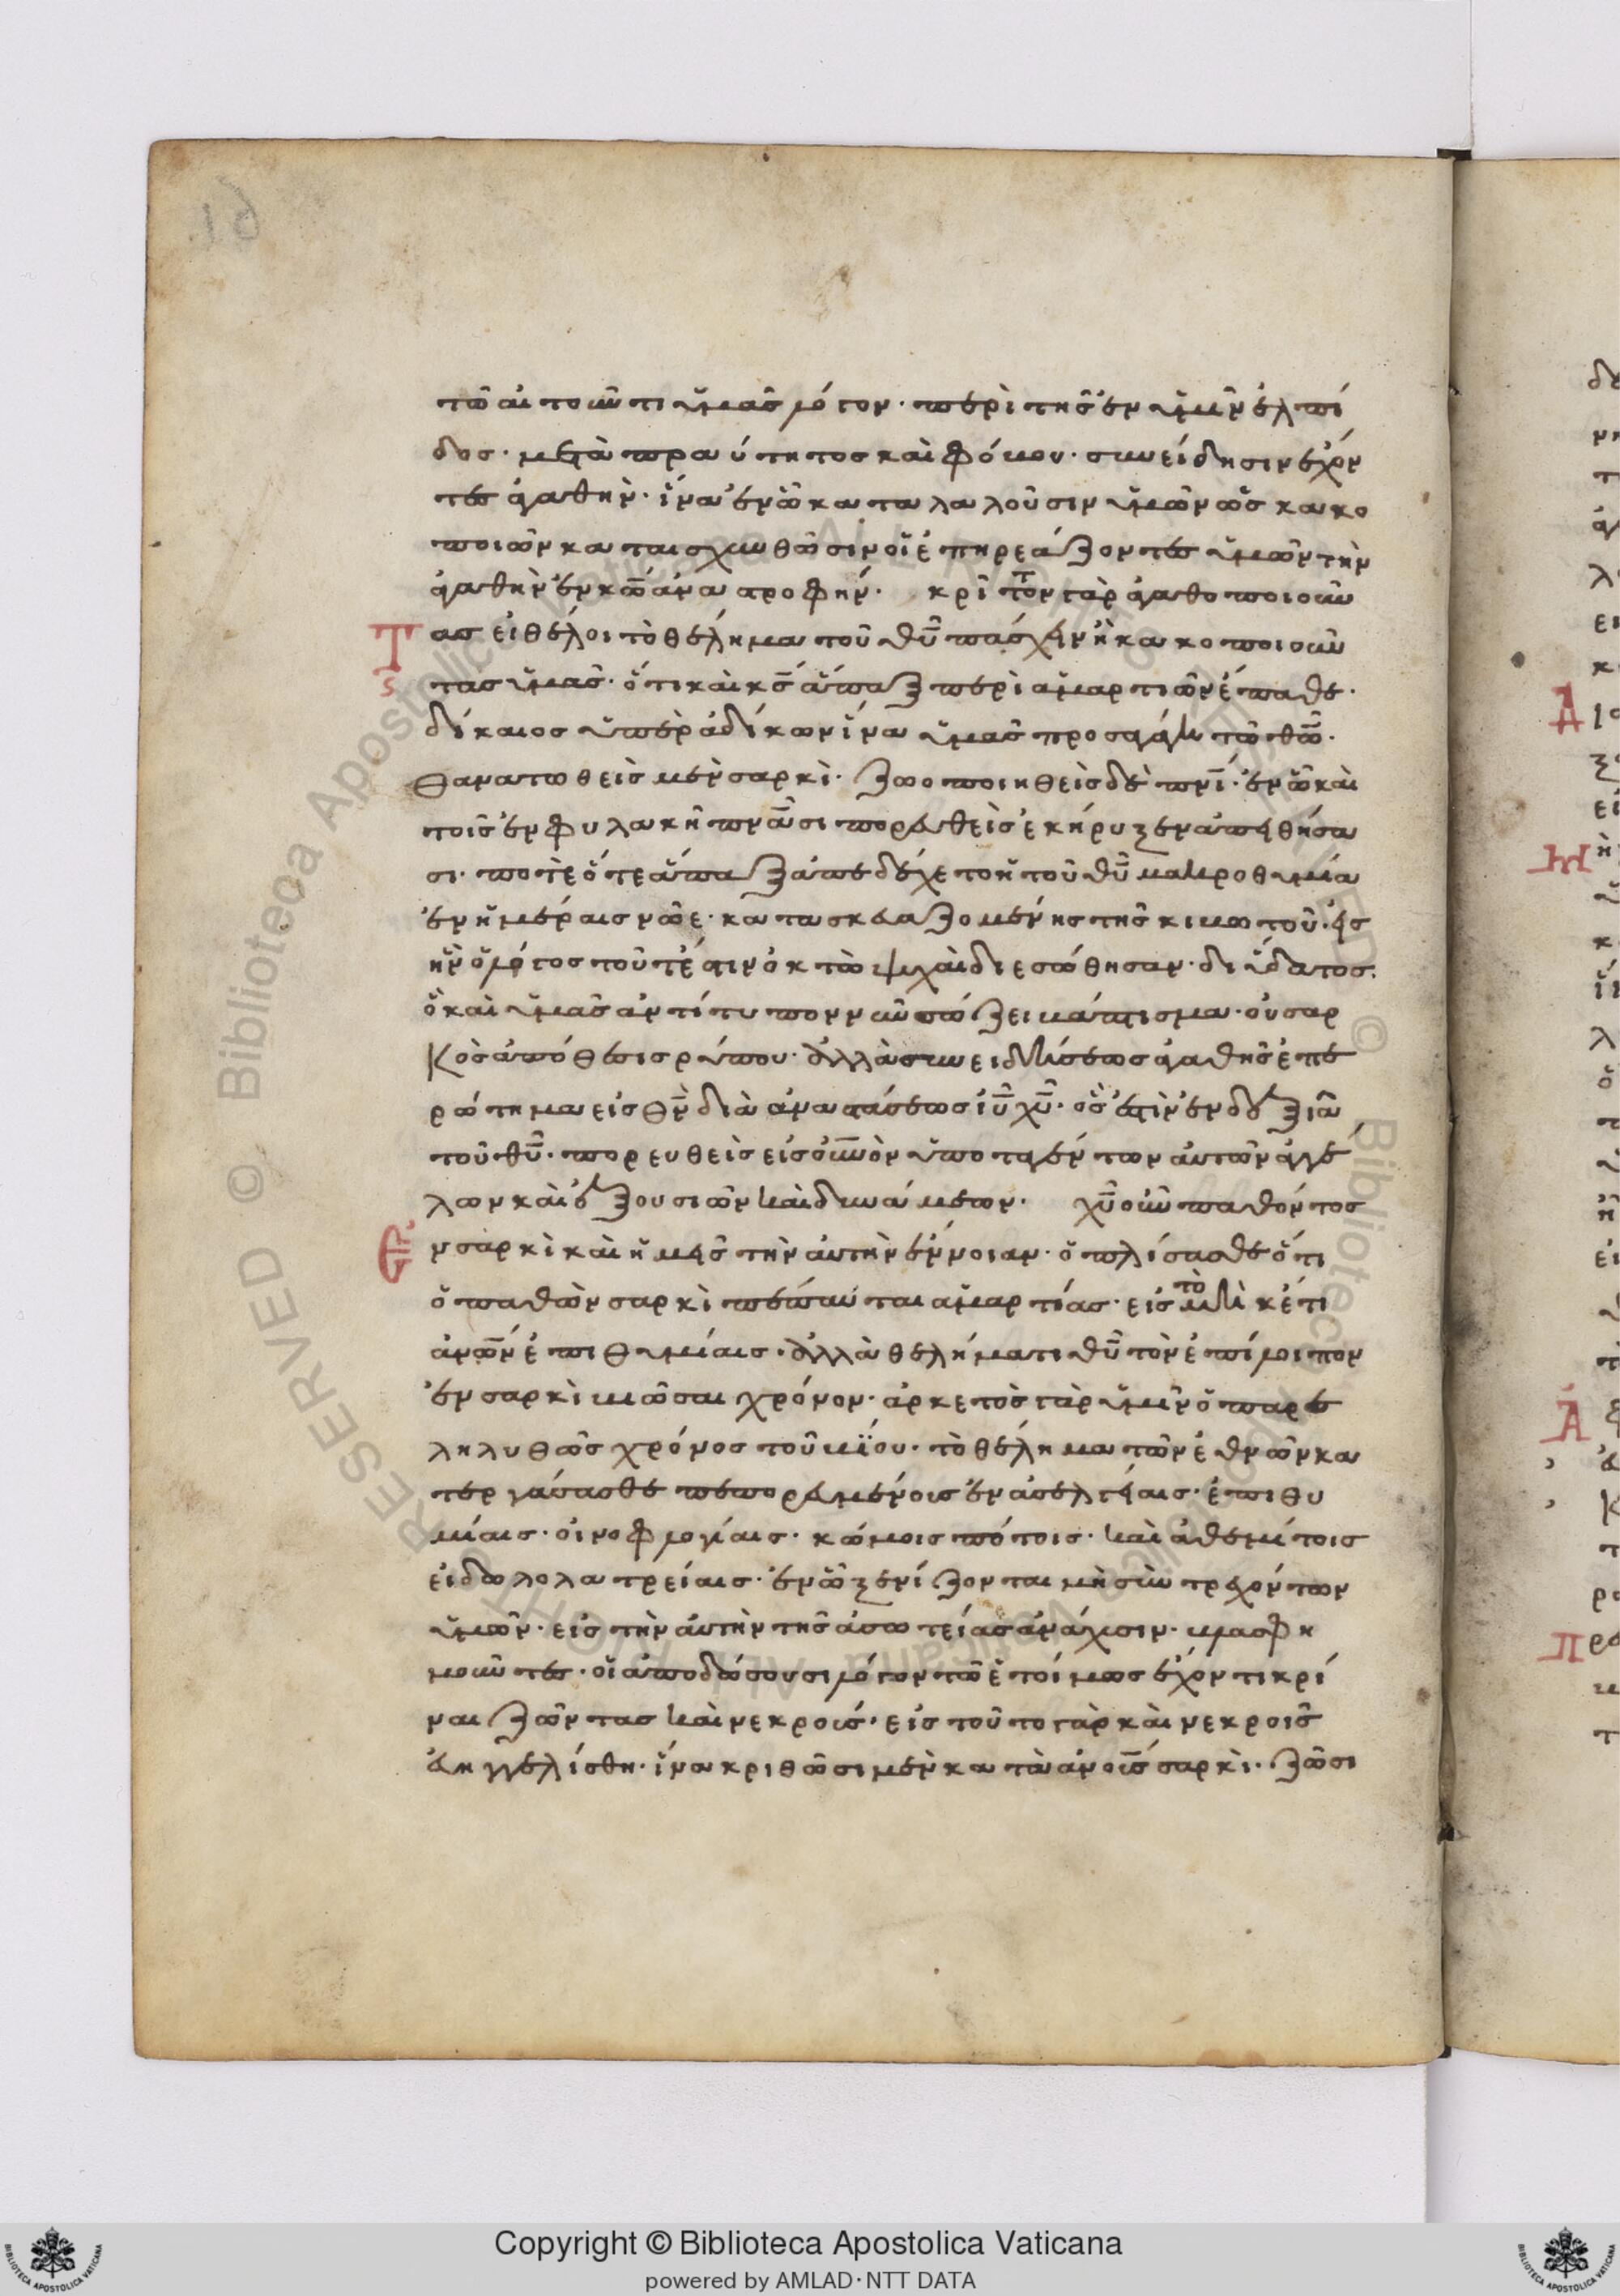 τῶ αἰτοῦντι ὑμᾶς λόγον· περὶ τῆς ἐν ὑμῖν ἐλπί
δος· μετὰ πραύτητος καὶ φόβου· συνείδησιν ἔχον
τες ἀγαθὴν· ἵνα ἐν ὧ καταλαλοῦσιν ὑμῶν ὡς κακο
ποιῶν καταισχυνθῶσιν οἱ ἐπηρεάζοντες ὑμῶν τὴν
ἀγαθὴν ἐν χω ἀναστροφήν· κρῖττον γὰρ ἀγαθοποιοῦν
τας εἰ θέλοι τὸ θέλημα τοῦ θυ πάσχειν ἢ κακοποιοῦν
τας ὑμᾶς· ὅτι καὶ χς ἅπαξ περὶ ἁμαρτιῶν ἔπαθε·
δίκαιος ὑπὲρ ἀδίκων ἵνα ὑμᾶς προσαγάγη τῶ θω·
θανατωθεὶς μὲν σαρκὶ· ζωοποιηθεὶς δὲ πνι· ἐν ὧ καὶ
τοῖς ἐν φυλακῆ πνασι πορευθεὶς ἐκήρυξεν ἀπειθήσα
σι· ποτὲ ὅτε ἅπαξ ἀπεδέχετο ἡ τοῦ θυ μακροθυμία
ἐν ἡμέραις νῶε· κατασκευαζομένης τῆς κιβωτοῦ· εἰς
ἣν ὀλίγοι τοῦτέστιν ὀκτὼ ψυχαὶ διεσώθησαν· δι ὕδατος·
ὃ καὶ ὑμᾶς ἀντίτυπον νῦν σώζει βάπτισμα· οὐ σαρ
κὸς ἀπόθεσις ρύπου· ἀλλὰ συνειδήσεως ἀγαθῆς ἐπε
ρώτημα εἰς θν διὰ ἀναστάσεως ιυ χυ· ὅς ἐστὶν ἐν δεξιᾶ
τοῦ θυ· πορευθεὶς εἰς οὐνον ὑποταγέντων αὐτῶν ἀγγέ
λων καὶ ἐξουσιῶν καὶ δυνάμεων· χυ οὖν παθόντος
ἐν σαρκὶ καὶ ἡμεῖς τὴν αὐτὴν ἔννοιαν· ὁπλίσασθε ὅτι
ὁ παθὼν σαρκὶ πέπαυται ἁμαρτίας· εἰς τὸ μηκέτι
ἀνων ἐπιθυμίαις· ἀλλὰ θελήματι θυ τὸν ἐπίλοιπον
ἐν σαρκὶ βιῶσαι χρόνον· ἀρκετὸς γὰρ ὑμῖν ὁ παρε
ληλυθὼς χρόνος τοῦ βίου· τὸ θέλημα τῶν ἐθνῶν κα
τεργάσασθε πεπορευμένοις ἐν ἀσελγείαις· ἐπιθυ
μίαις· οἰνοφλογίαις· κώμοις πότοις· καὶ ἀθεμίτοις
εἰδωλολατρείαις· ἐν ὧ ξενίζονται μὴ σὺντρεχόντων
ὑμῶν· εἰς τὴν αὐτὴν τῆς ἀσωτείας ἀνάχυσιν· βλασφη
μοῦντες· οἱ ἀποδώσουσι λόγον τῶ ἑτοίμως ἔχοντι κρί
ναι ζῶντας καὶ νεκρούς· εἰς τοῦτο γὰρ καὶ νεκροῖς
εὐηγγελίσθη· ἵνα κριθῶσι μὲν κατὰ ἀνους σαρκὶ· ζῶσι
Copyright © Biblioteca Apostolica Vaticana
powered by AMLAD·NTT DATA